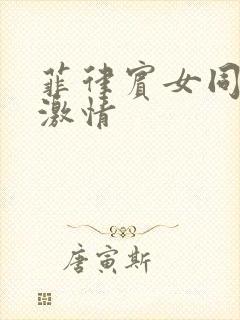 菲律宾女同
激情
唐寅斯